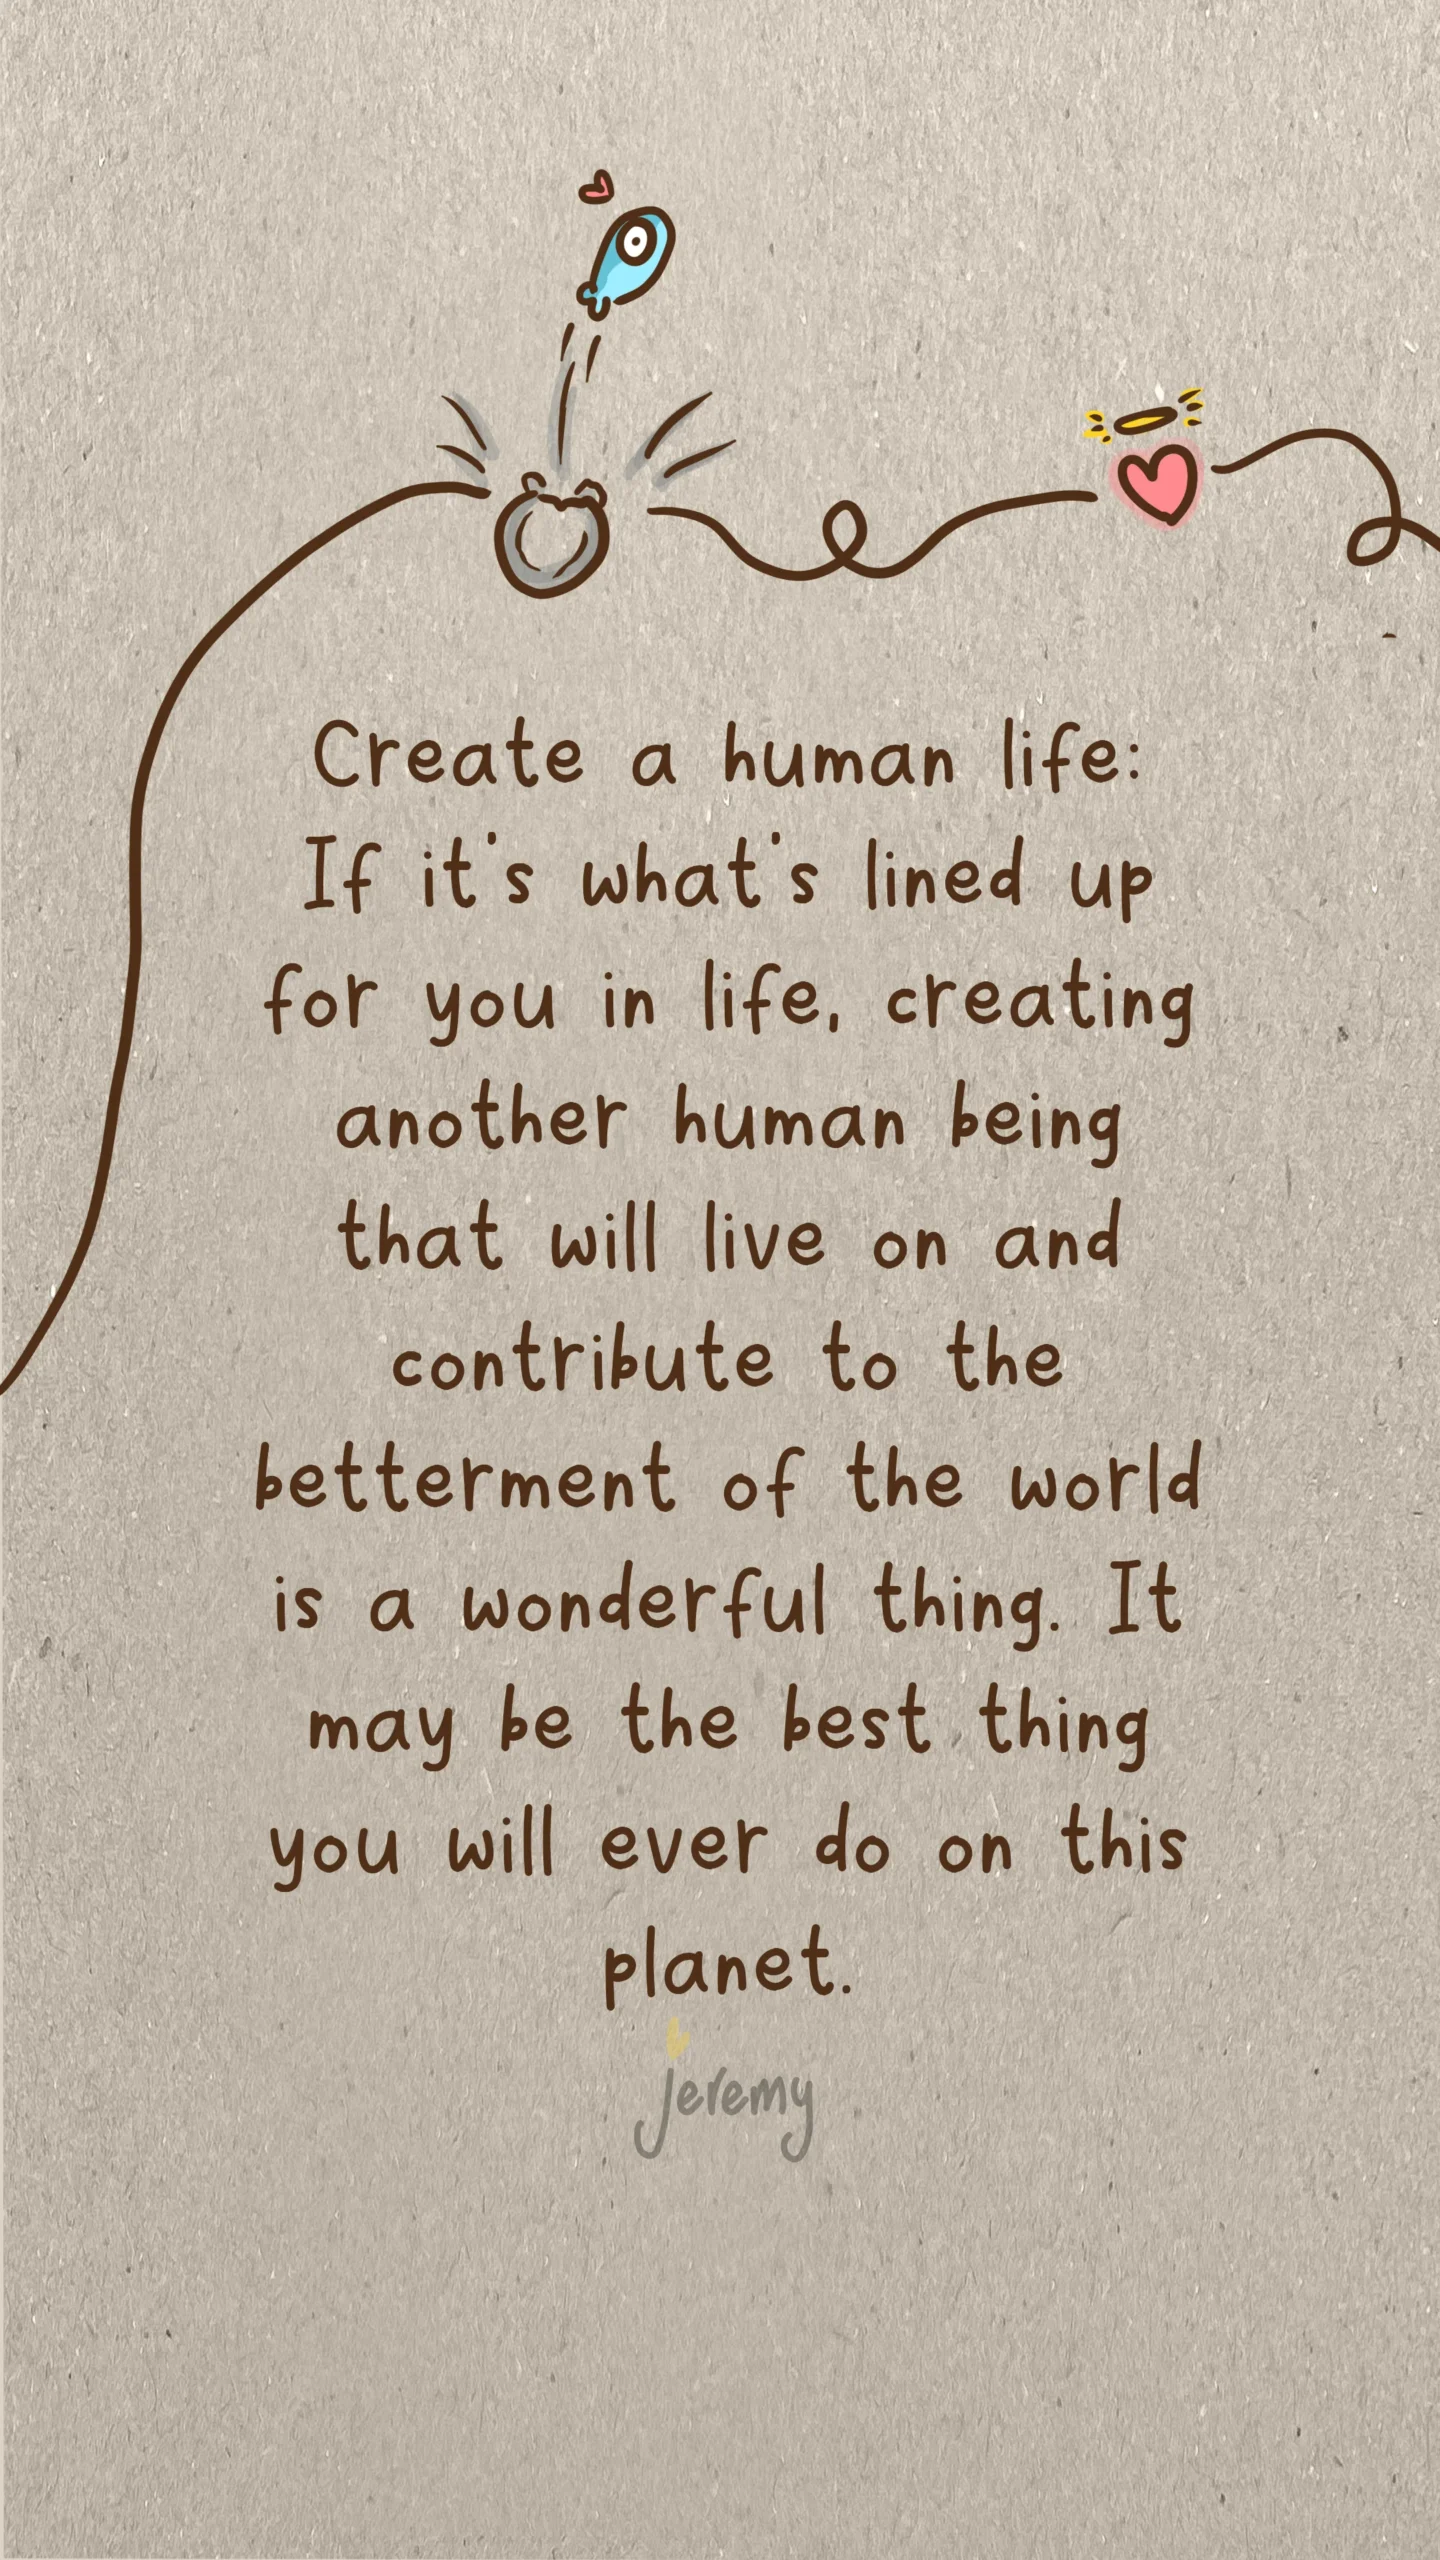 Create a human life:
If it's what's lined up
for you in life, creating
another human being
that will live on and
contribute to the
betterment of the world
is a wonderful thing. It
may be the best thing
you will ever do on this
planet.
jeremy